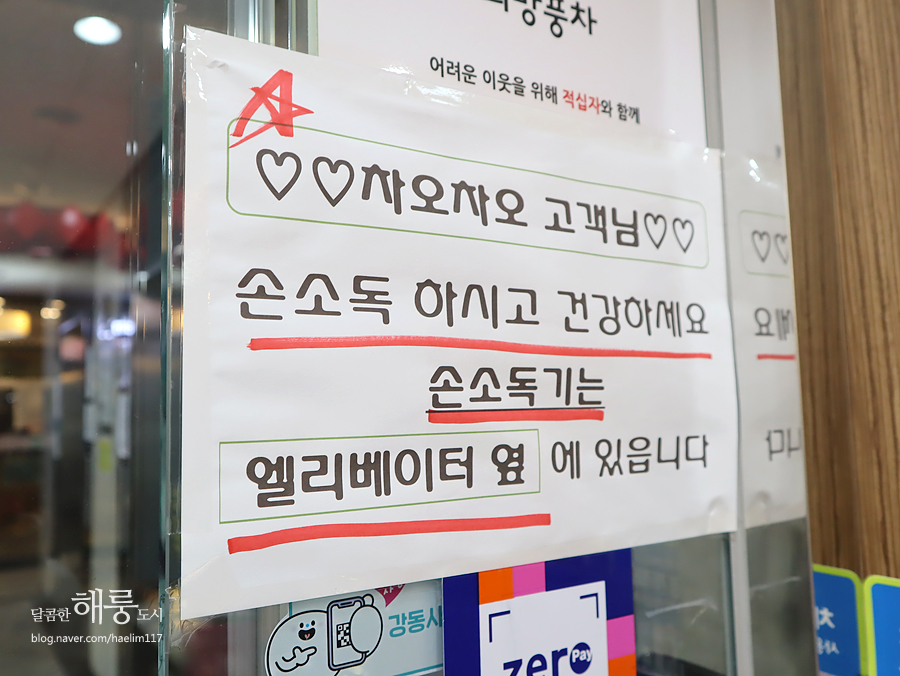 희망풍차
어려운 이웃을 위해 적십자와 함께
♡♡차오차오 고객님♡♡
손소독 하시고 건강하세요
손소독기는
엘리베이터 옆 에 있읍니다
강동사
zero Pay
달콤한 해룽 도시
blog.naver.com/haelim117